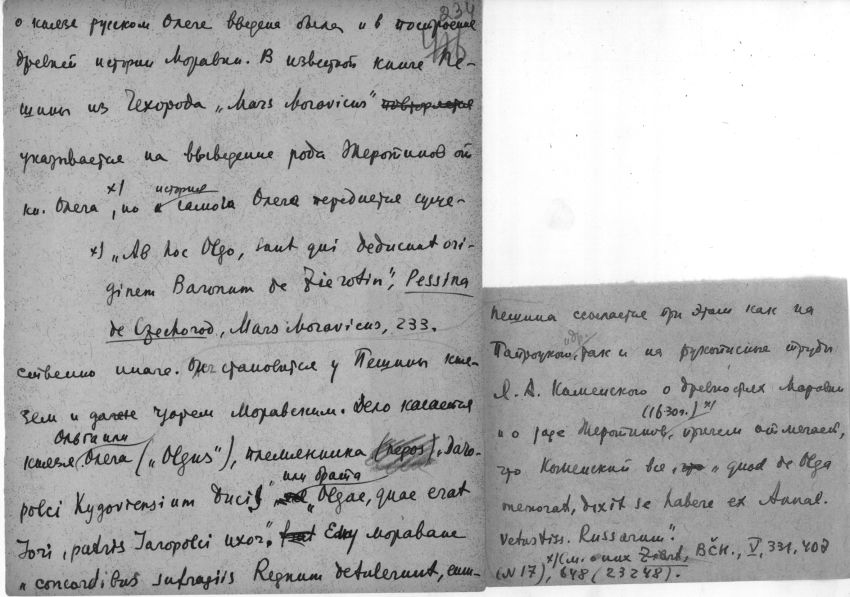 234
о князе русском Олеге введена была и в построение
древней истории Моравии. В известной книге Пе-
шины из Чехорода „Mars Moravicus"
указывается на выведение рода Жеротинов от
история
кн. Олега x), но самого Олега передается суще-
x) „Ab hoc Olgo, sunt qui deducunt ori-
ginem Baronum de Zierotin", Pessina
de Czechorod, Mars Moravicus, 233.
ственно иначе. Он становится у Пешины кня-
зем и даже царем Моравским. Дело касается
Ольги или
князя Олега („Olgus"), племянника (nepos) „Jaro-
или брата
polci Kygoviensium Ducis" „Olgae, quae erat
Jori, patris Jaropolci uxor". Ему мораване
„concordibus sufragiis Regnum detulerunt, eum-
Пешина ссылается при этом как на
др.
Папроцкого, так и на рукописные труды
Я. А. Каменского о древностях Моравии
(1630г.) x)
и о роде Жеротинов, причем отмечает,
что Коменский все, „quod de Olga
memorat, dixit se habere ex Annal.
vetustiss. Russorum".
x) (См. о них Zíbrt, BČH., V, 331, 407
(N 17), 648 (23248).